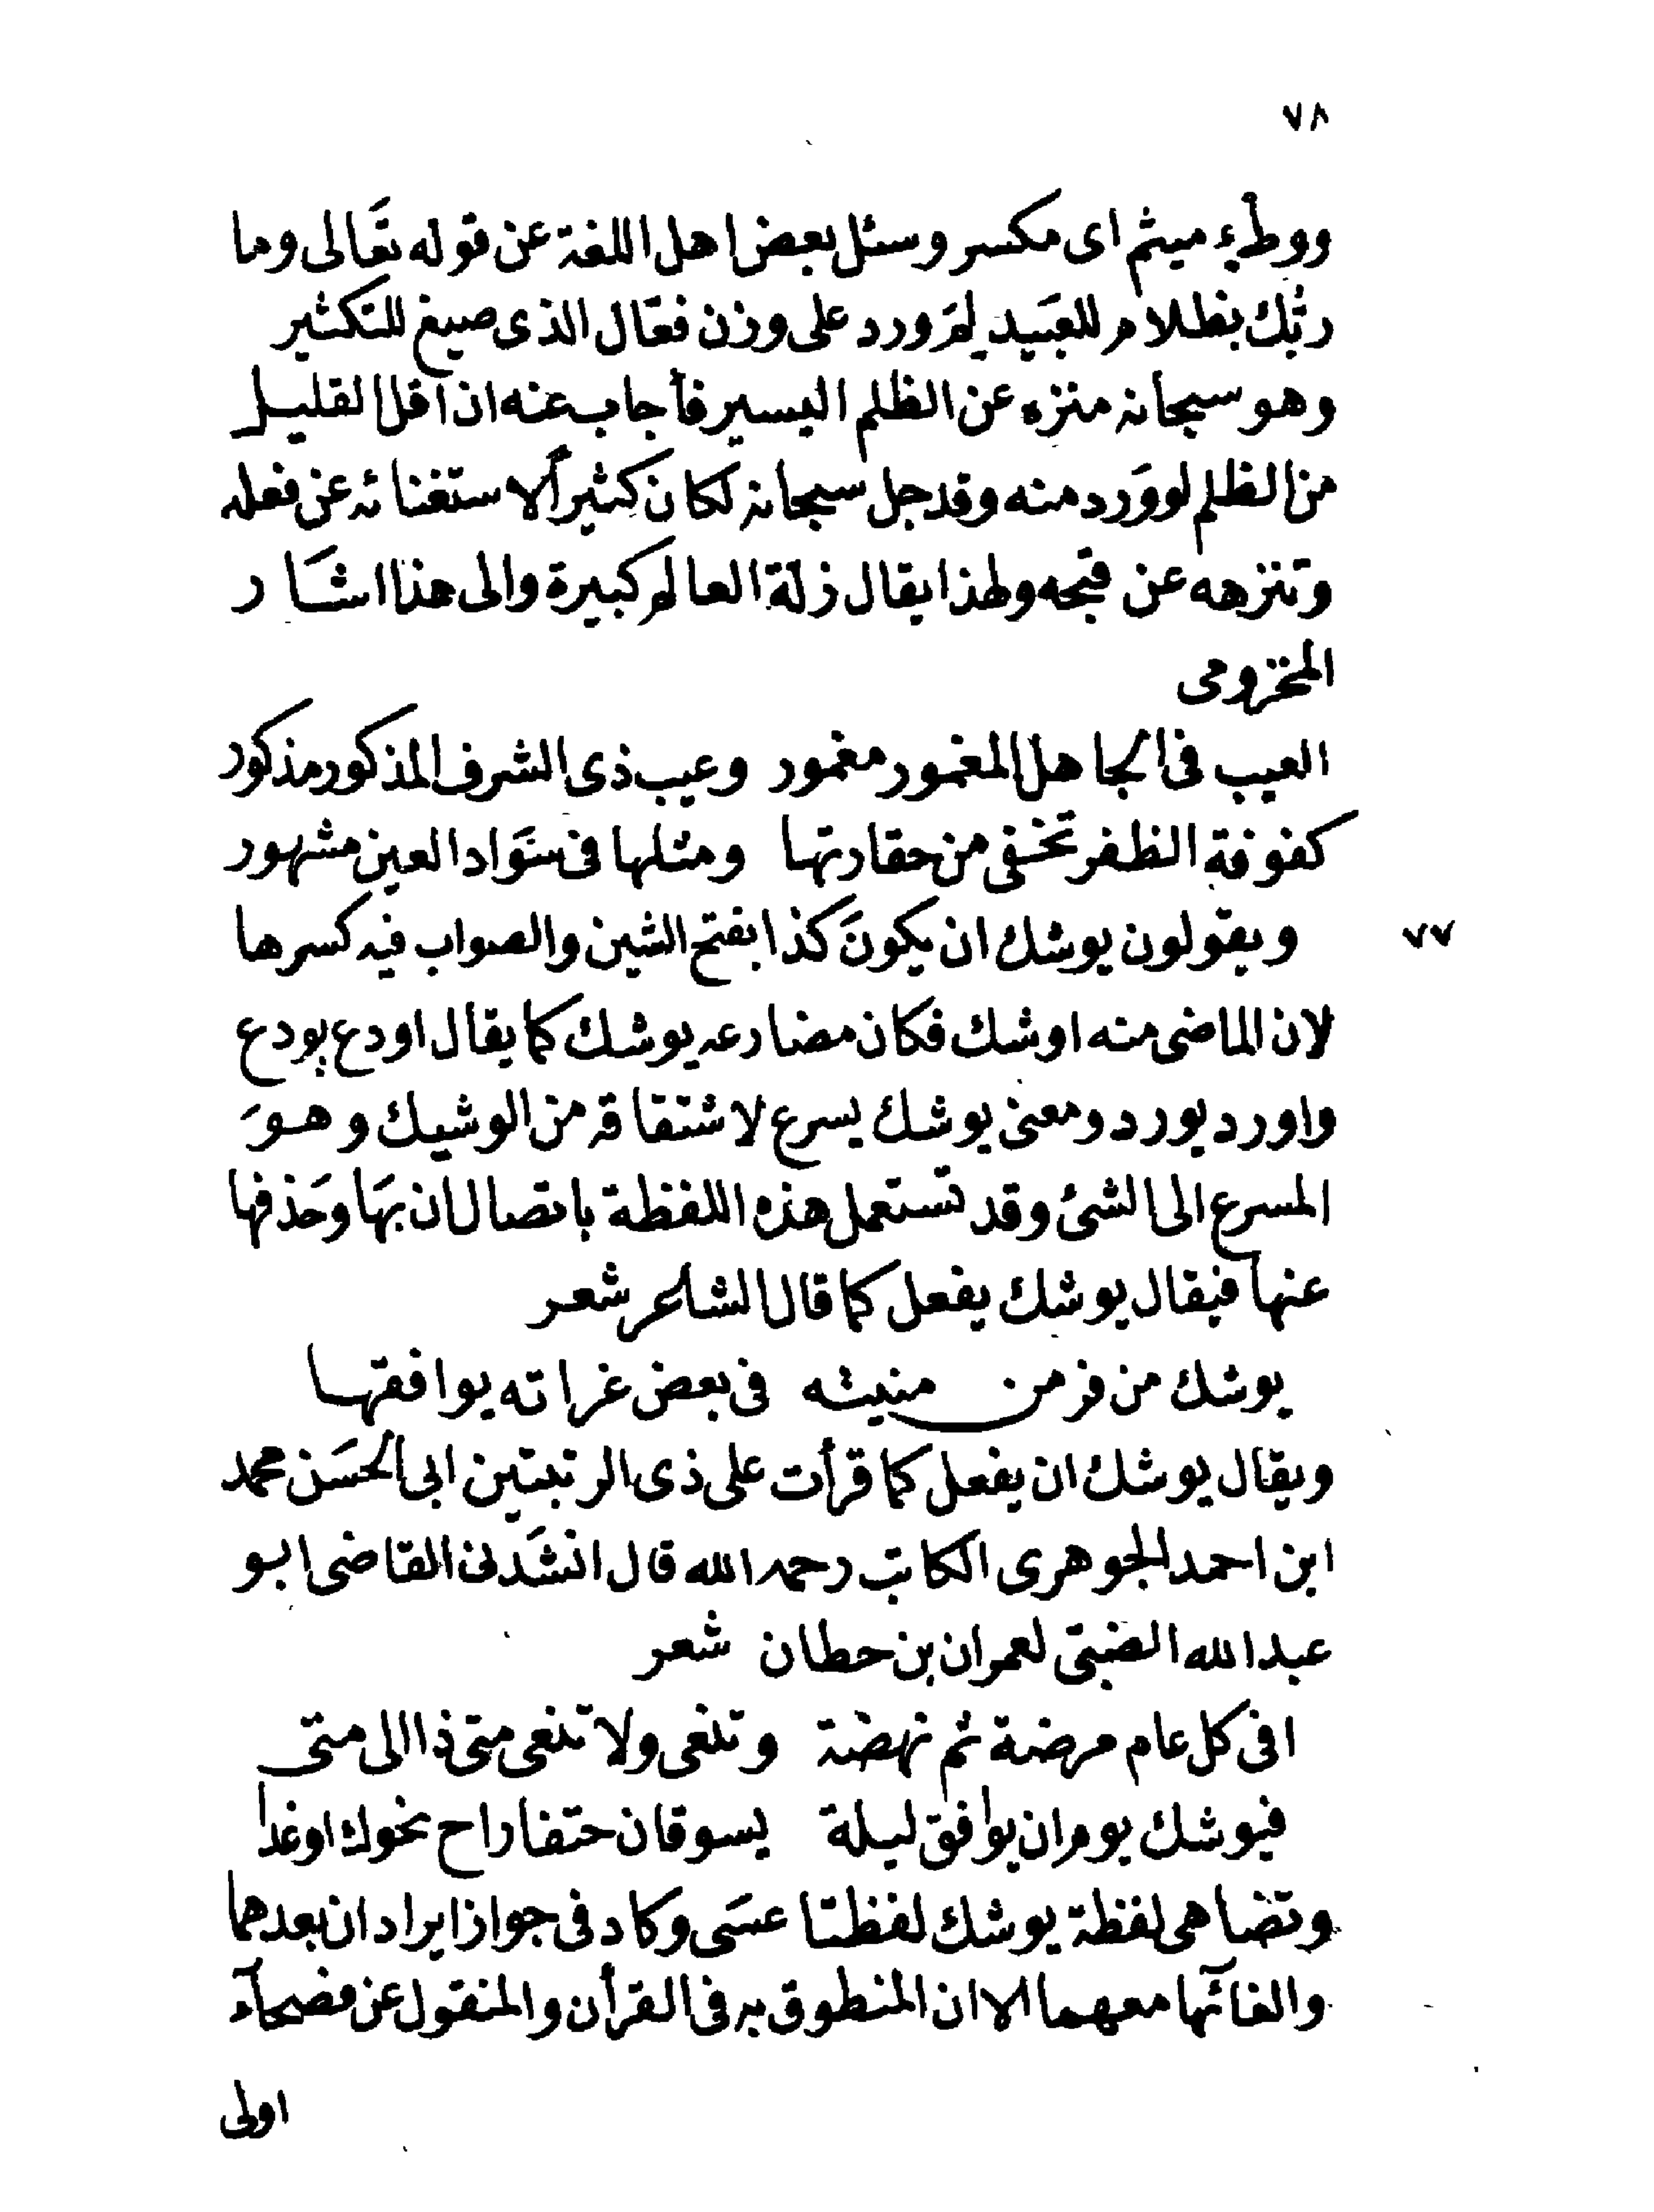 ٧٨
ووطْء ميثم اى مكسر وسئل بعض اهل اللغة عن قوله تعَالى وما
ربُّك بظلام للعبَيد لِمَ ورد على وزن فعّال الذى صيغ للتكثير
وهو سبحانه منزه عن الظلم اليسير فأجاب عنه ان اقل القليل
من الظلم لو وَرد منه وقد جل سبحانه لكان كثيراً لاستغنائه عن فعله
وتنزهه عن قبحه ولهذا يقال زلة العالم كبيرة والى هذا اشَار
المخزومى
العيب فى الجاهل المغمور مغمور وعيب ذى الشرف المذكور مذكور
كفوفة الظفر تخفى من حقارتها ومثلها فى سَواد العين مشهور
٧٧ ويقولون يوشك ان يكونَ كذا بفتح الشين والصواب فيه كسرها
لان الماضى منه اوشك فكان مضارعه يوشك كما يقال اودع يودع
واورد يورد ومعنى يوشك يسرع لاشتقاقه من الوشيك وهوَ
المسرع الى الشئ وقد تستعمل هذه اللفظة باتصال ان بهَا وحَذفها
عنها فيقال يوشك يفعل كما قال الشاعر شعر
يوشك من فر من منيته فى بعض غراته يوافقها
ويقال يوشك ان يفعل كما قرأت على ذى الرتبتين ابى الحسَن محمد
ابن احمد الجوهرى الكاتب رحمه الله قال انشَدنى القاضى ابو
عبد الله الضبّى لعمران بن حطان شعر
افى كل عام مرضة ثم نهضة وتنعى ولا تنعى متى ذا الى متى
فيوشك يوم ان يوافق ليلة يسوقان حتفا راح نحوك او غدا
وتضاهى لفظة يوشك لفظتا عسَى وكاد فى جواز ايراد ان بعدهما
والغائها معهما الا ان المنطوق به فى القرأن والمنقول عن فصحآء
اولى